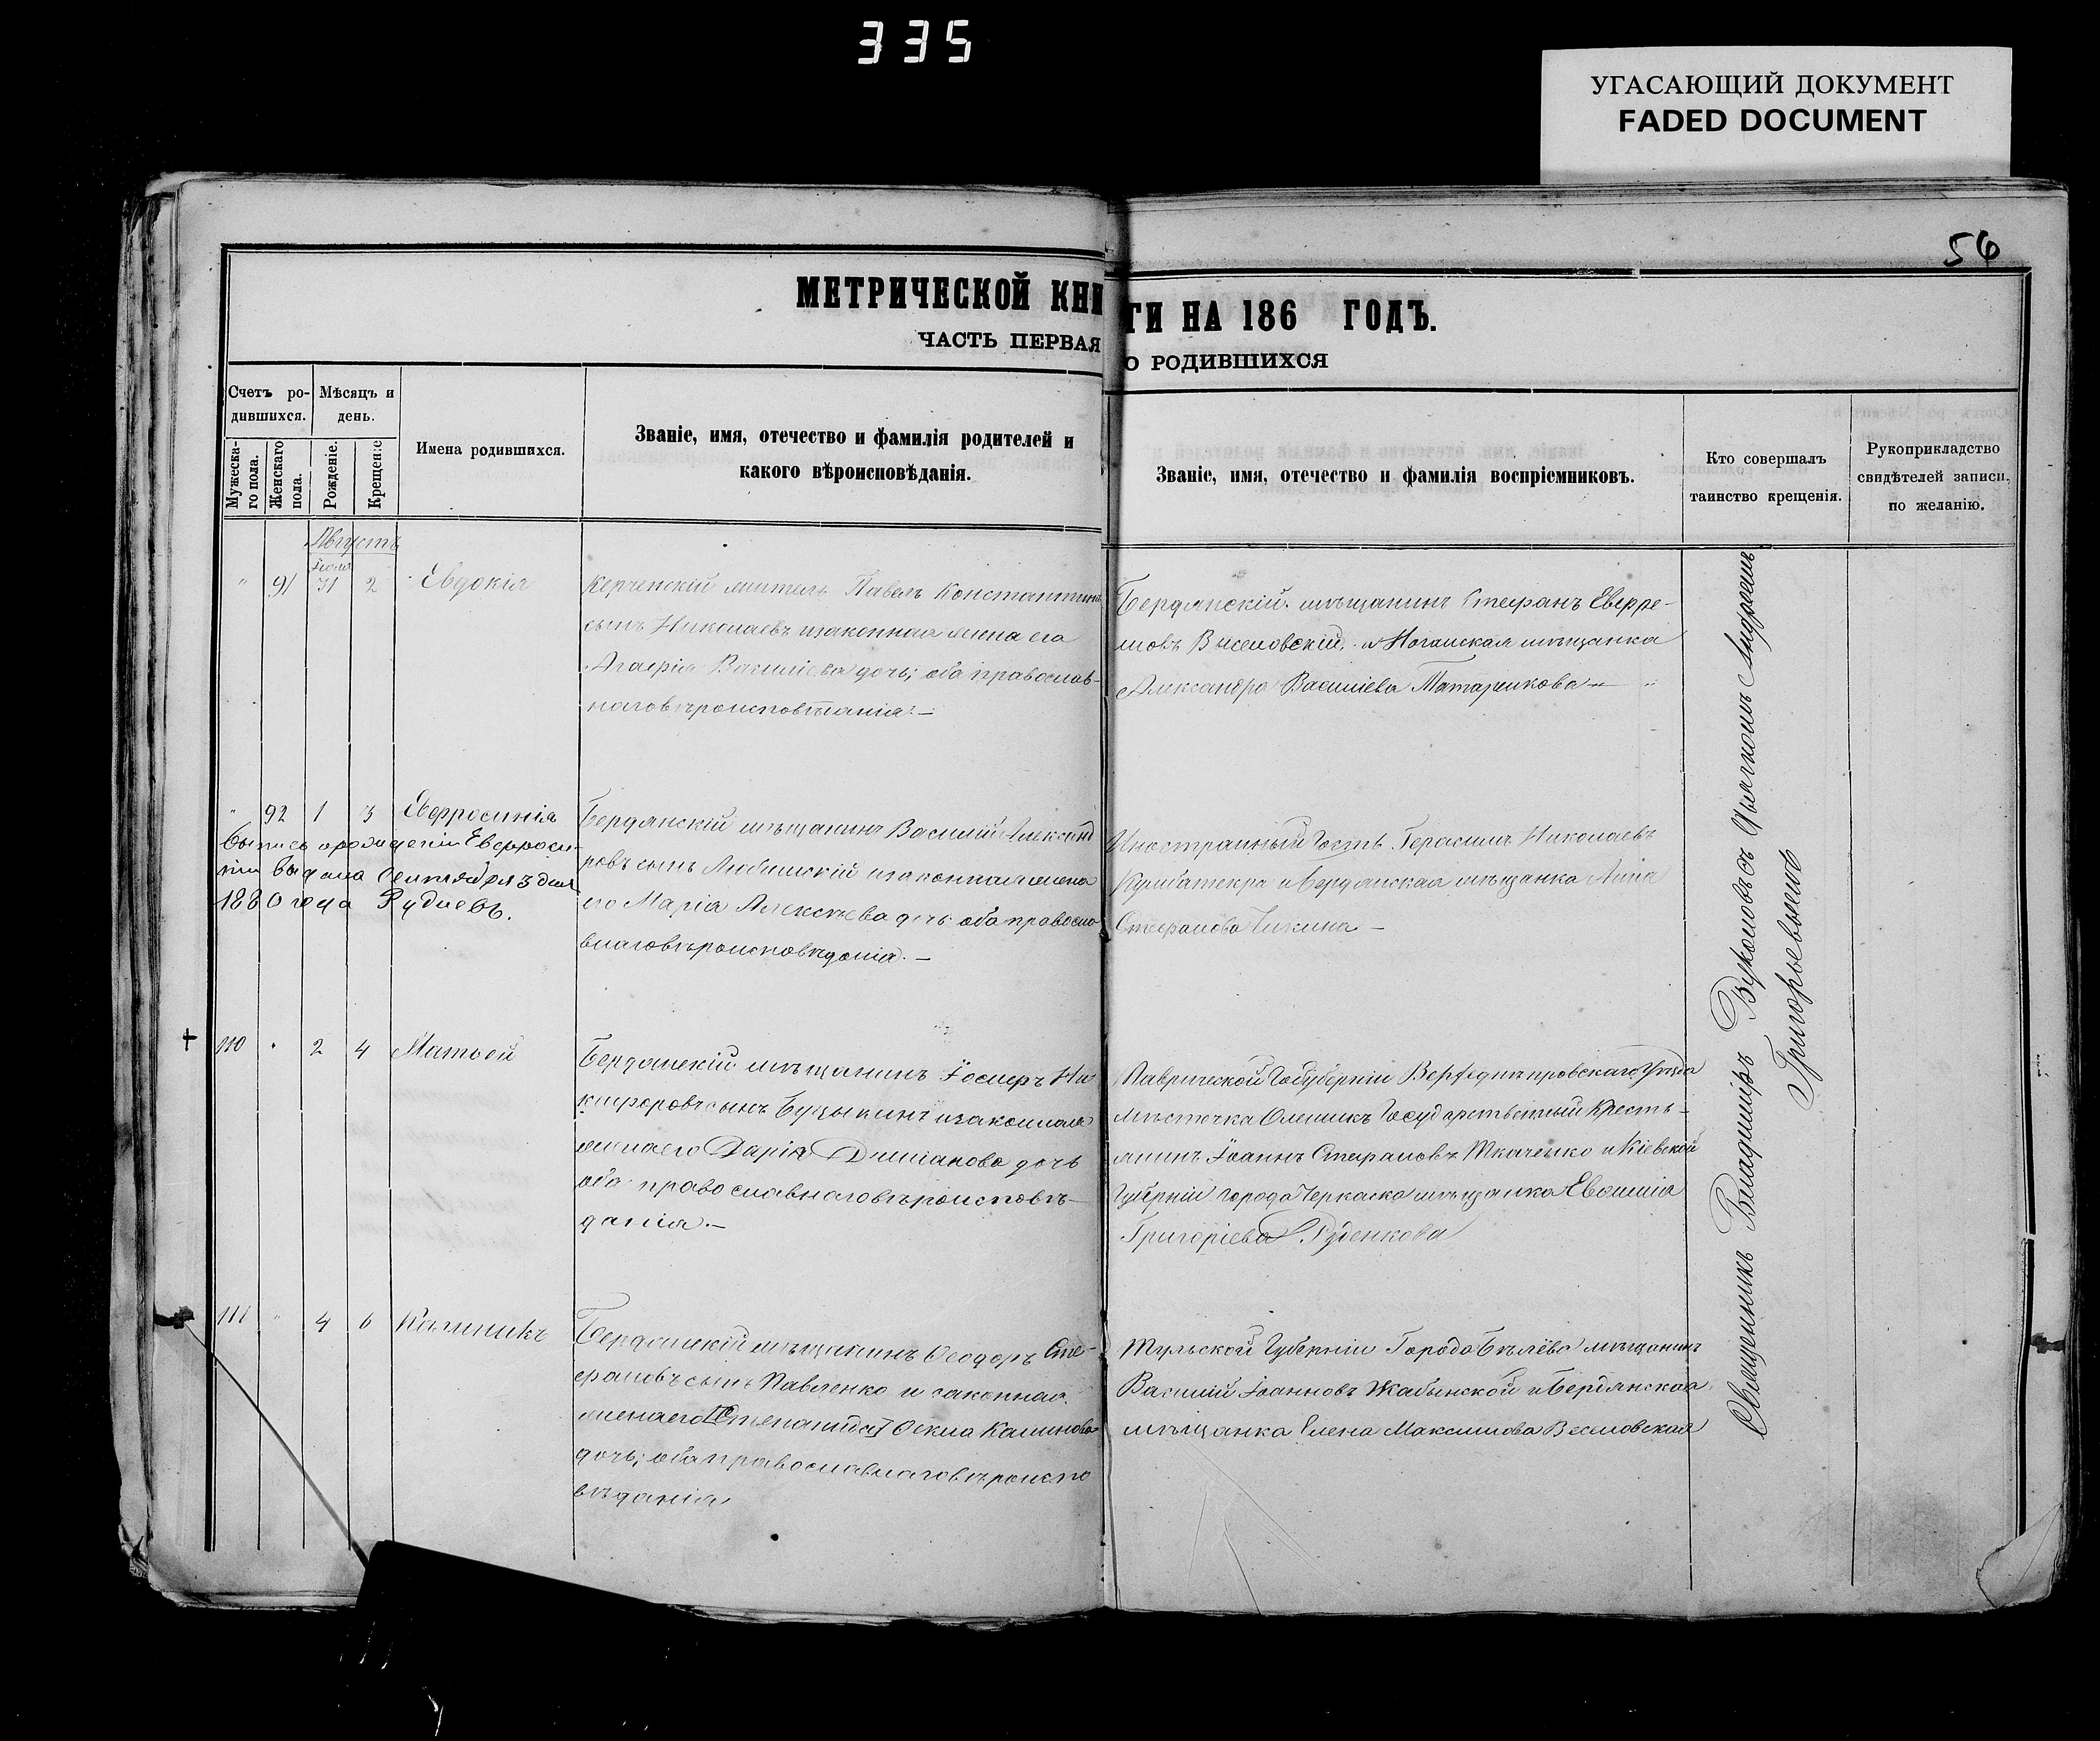 335
УГАСАЮЩИЙ ДОКУМЕНТ
FADED DOCUMENT
56
МЕТРИЧЕСКОЙ КНИГИ НА 186 ГОДЪ.
ЧАСТЬ ПЕРВАЯ О РОДИВШИХСЯ
Счетъ родившихся.
Мужескаго пола.
Женскаго пола.
Мѣсяцъ и день.
Рожденіе.
Крещеніе
Имена родившихся.
Званіе, имя, отечество и фамилія родителей и
какого вѣроисповѣданія.
Званіе, имя, отечество и фамилія воспріемниковъ.
Кто совершалъ
таинство крещенія.
Рукоприкладство
свидѣтелей записи,
по желанію.
Августъ
Іюля
" 91 31 2 Евдокія
Керченскій житель Павелъ Константинъ
сынъ Николаевъ изаконная жена его
Агафія Василіева дочь; оба православ-
наговѣроисповѣданія.—
Бердянскій мѣщанинъ Стефанъ Евфре-
мовъ Веселовскій и Ногайская мѣщанка
Александра Василіева Татаренкова
" 92 1 3 Евфросинія
Выпись орождении Евфроси-
нии выдана Сентября 3 дня
1880 года Рудневъ.
Бердянскій мѣщанинъ Василій Александ
ровъ сынъ изаконная жена
его Марія Алексѣева дочь оба правосла-
внаговѣроисповѣданія.—
Иностранный Гость Герасимъ Николаевъ
и Бердянская мѣщанка Анна
Стефанова —
110 " 2 4 Матѳей
Бердянскій мѣщанинъ Іосифъ Ни
кифоровъ сынъ Буцыкинъ изаконная
женаего Дарія Даміанова дочь
оба православнаговѣроисповѣ-
данія.—
Таврической Губерніи Верхеднѣпровскаго Уѣзда
мѣстечка Олешикъ Государственный Кресть-
янинъ Іоаннъ Стефановъ Ткаченко и Кіевской
Губерніи города Черкаска мѣщанка Евѳимія
Григоріева Руденкова
111 " 4 6 Калиникъ
Бердянскій мѣщанинъ Ѳеодоръ Сте-
фановъ сынъ Павленко и законная
женаего [Степанида] Ѳекла Калинова
дочь; оба православнаговѣроиспо
вѣданія
Тульской Губерніи Города Бѣлёва мѣщанинъ
Василій Іоанновъ Жабынской и Бердянская
мѣщанка Елена Максимова Веселовская
Священникъ Владиміръ Вуколовъ съ Дьячкомъ Андреемъ
Григорьевымъ